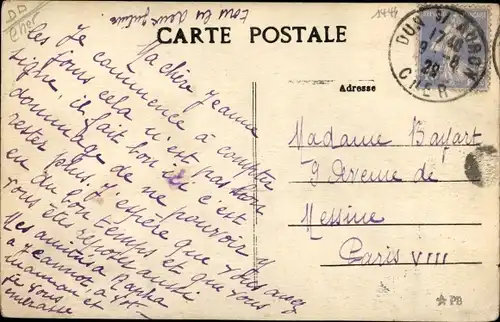 DD
Cher
tous les deux
1444
CARTE POSTALE
DUN AURON
17 40
9 -8
28
CHER
Adresse
Ma chère Jeanne
Je commence à compter
les jours cela n'est pas bon
signe, il fait bon ici c'est
dommage de ne pouvoir y
rester plus. J'espère que vous avez
eu du bon temps et que vous
vous êtes reposés aussi.
Mes amitiés à
à Jeannot à
maman et
je vous
embrasse
Madame Bayart
9 Avenue de
Messine
Paris VIII
PB